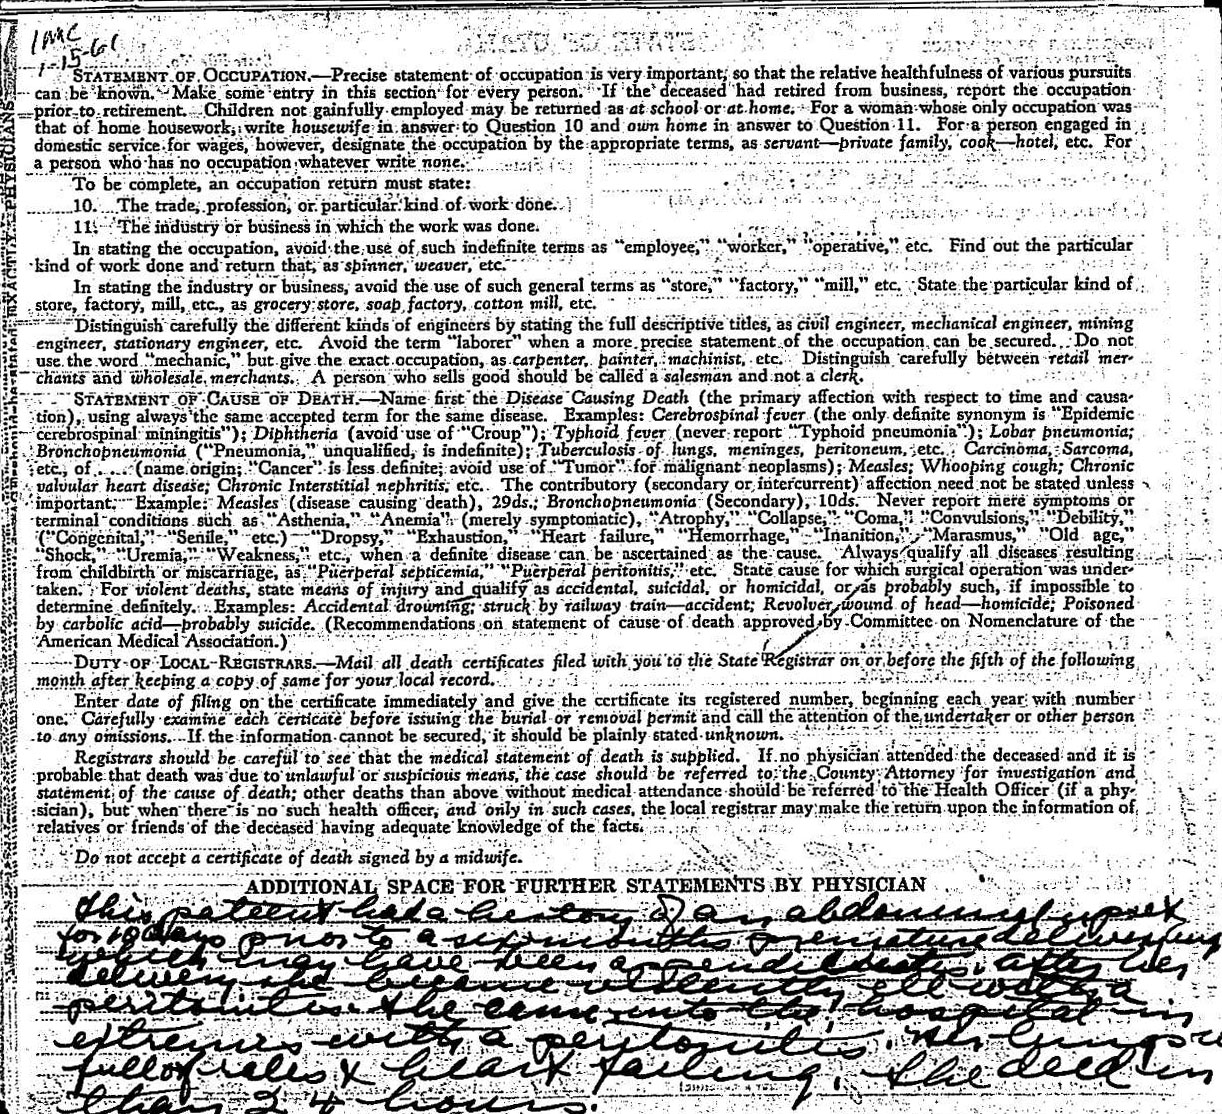 1-15-61
STATEMENT OF OCCUPATION.—Precise statement of occupation is very important, so that the relative healthfulness of various pursuits
can be known. Make some entry in this section for every person. If the deceased had retired from business, report the occupation
prior to retirement. Children not gainfully employed may be returned as at school or at home. For a woman whose only occupation was
that of home housework, write housewife in answer to Question 10 and own home in answer to Question 11. For a person engaged in
domestic service for wages, however, designate the occupation by the appropriate terms, as servant—private family, cook—hotel, etc. For
a person who has no occupation whatever write none.
To be complete, an occupation return must state:
10. The trade, profession, or particular kind of work done.
11. The industry or business in which the work was done.
In stating the occupation, avoid the use of such indefinite terms as "employee," "worker," "operative," etc. Find out the particular
kind of work done and return that, as spinner, weaver, etc.
In stating the industry or business, avoid the use of such general terms as "store," "factory," "mill," etc. State the particular kind of
store, factory, mill, etc., as grocery store, soap factory, cotton mill, etc.
Distinguish carefully the different kinds of engineers by stating the full descriptive titles, as civil engineer, mechanical engineer, mining
engineer, stationary engineer, etc. Avoid the term "laborer" when a more precise statement of the occupation can be secured. Do not
use the word "mechanic," but give the exact occupation, as carpenter, painter, machinist, etc. Distinguish carefully between retail mer-
chants and wholesale merchants. A person who sells good should be called a salesman and not a clerk.
STATEMENT OF CAUSE OF DEATH.—Name first the Disease Causing Death (the primary affection with respect to time and causa-
tion), using always the same accepted term for the same disease. Examples: Cerebrospinal fever (the only definite synonym is "Epidemic
cerebrospinal miningitis"); Diphtheria (avoid use of "Croup"); Typhoid fever (never report "Typhoid pneumonia"); Lobar pneumonia;
Bronchopneumonia ("Pneumonia," unqualified, is indefinite); Tuberculosis of lungs, meninges, peritoneum, etc. Carcinoma, Sarcoma,
etc., of ..... (name origin; "Cancer" is less definite; avoid use of "Tumor" for malignant neoplasms); Measles; Whooping cough; Chronic
valvular heart disease; Chronic Interstitial nephritis, etc. The contributory (secondary or intercurrent) affection need not be stated unless
important. Example: Measles (disease causing death), 29ds.; Bronchopneumonia (Secondary), 10ds. Never report mere symptoms or
terminal conditions such as "Asthenia," "Anemia" (merely symptomatic), "Atrophy," "Collapse," "Coma," "Convulsions," "Debility,"
("Congenital," "Senile," etc.) "Dropsy," "Exhaustion," "Heart failure," "Hemorrhage," "Inanition," "Marasmus," "Old age,"
"Shock," "Uremia," "Weakness," etc., when a definite disease can be ascertained as the cause. Always qualify all diseases resulting
from childbirth or miscarriage, as "Puerperal septicemia," "Puerperal peritonitis," etc. State cause for which surgical operation was under-
taken. For violent deaths, state means of injury and qualify as accidental, suicidal, or homicidal, or as probably such, if impossible to
determine definitely. Examples: Accidental drowning; struck by railway train—accident; Revolver wound of head—homicide; Poisoned
by carbolic acid—probably suicide. (Recommendations on statement of cause of death approved by Committee on Nomenclature of the
American Medical Association.)
DUTY OF LOCAL REGISTRARS.—Mail all death certificates filed with you to the State Registrar on or before the fifth of the following
month after keeping a copy of same for your local record.
Enter date of filing on the certificate immediately and give the certificate its registered number, beginning each year with number
one. Carefully examine each certicate before issuing the burial or removal permit and call the attention of the undertaker or other person
to any omissions. If the information cannot be secured, it should be plainly stated unknown.
Registrars should be careful to see that the medical statement of death is supplied. If no physician attended the deceased and it is
probable that death was due to unlawful or suspicious means, the case should be referred to the County Attorney for investigation and
statement of the cause of death; other deaths than above without medical attendance should be referred to the Health Officer (if a phy-
sician), but when there is no such health officer, and only in such cases, the local registrar may make the return upon the information of
relatives or friends of the deceased having adequate knowledge of the facts.
Do not accept a certificate of death signed by a midwife.
ADDITIONAL SPACE FOR FURTHER STATEMENTS BY PHYSICIAN
this patient had a history of an abdominal upset
for 10 days prior to a six months premature delivery
which may have been appendicitis. after her
delivery she became violently ill with a
peritonitis. She came into the hospital in
extremis with a peritonitis. Her lungs
full of rales & heart failing. She died in
than 24 hours.